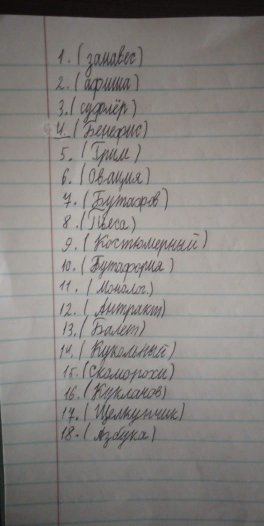 1. (занавес)
2. (афиша)
3. (суфлёр)
4. (Бенефис)
5. (Грим)
6. (Овация)
7. (Бутафов)
8. (Пьеса)
9. (Костюмерный)
10. (Бутафория)
11. (Монолог)
12. (Антракт)
13. (Балет)
14. (Кукольный)
15. (Скоморохи)
16. (Куклачов)
17. (Щелкунчик)
18. (Азбука)